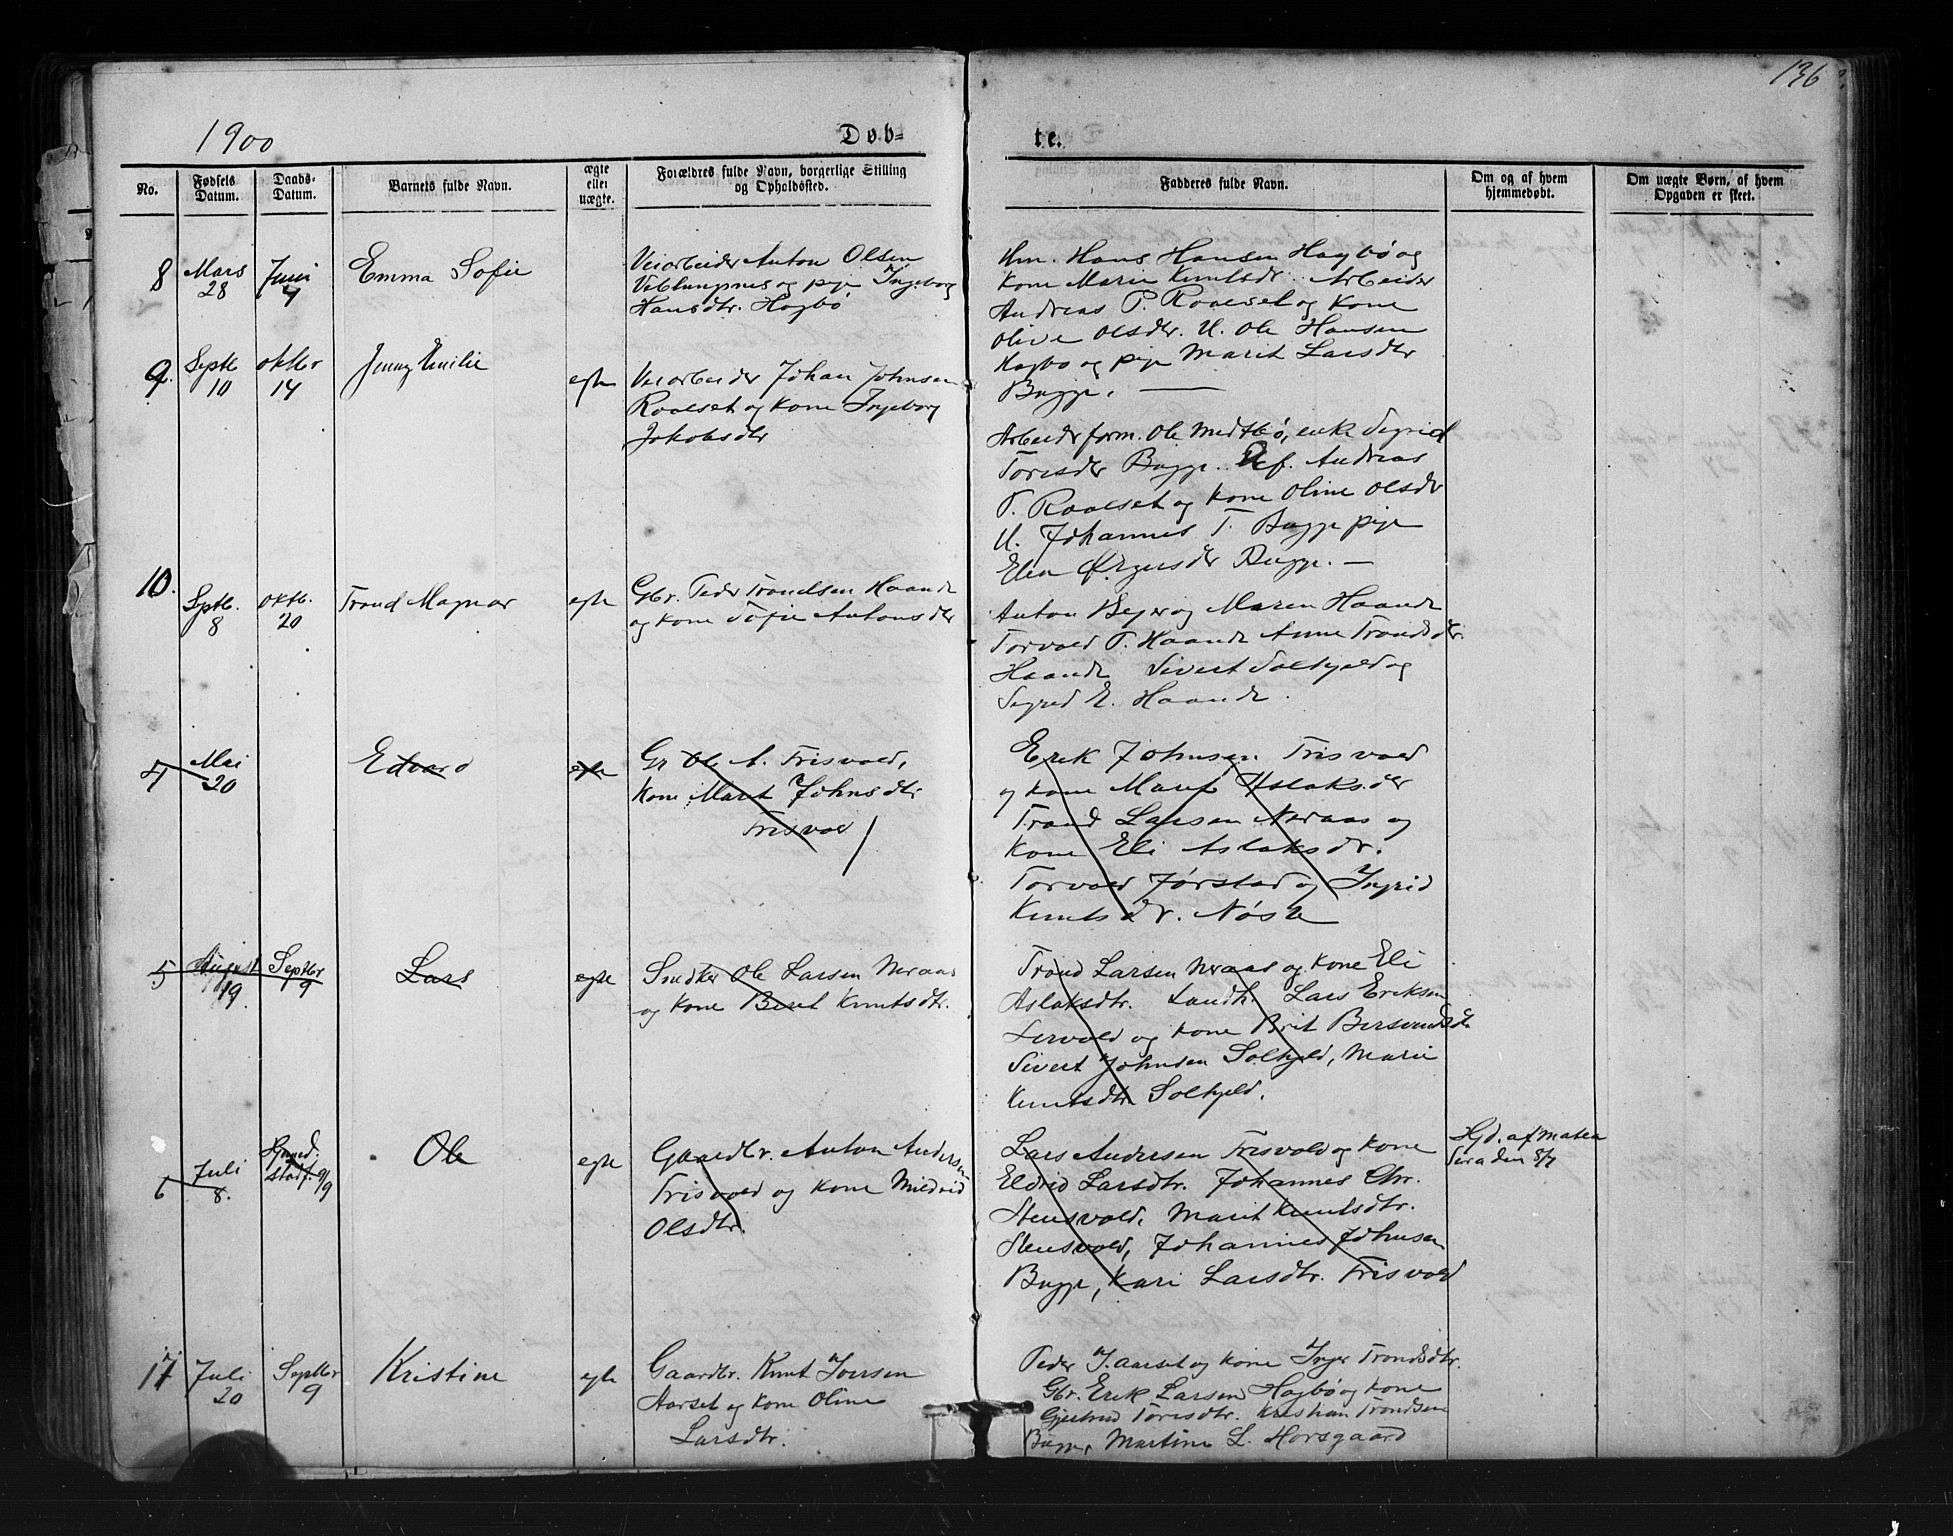 136
1900
Døb-
te.
No.
Fødsels Datum.
Daabs- Datum.
Barnets fulde Navn.
ægte eller uægte.
Forældres fulde Navn, borgerlige Stilling og Opholdssted.
Fadderes fulde Navn.
Om og af hvem hjemmedøbt.
Om uægte Børn, af hvem Opgaven er skeet.
8
Mars 28
Juni 4
Emma Sofie
Veiarbeider Anton Olsen
Veblungnes og pige Ingeborg
Hansdtr. Hagbø
Um. Hans Hansen Hagbø og
Kone Marie Knutsdr. Arbeider
Andreas P. Roaldset og Kone
Olive Olsdtr. U. Ole Hansen
Hagbø og pige Marit Larsdtr
Bugge.
9.
Septb 10
Oktbr 14
Jenny Emilie
egte
Veiarbeider Johan Johnsen
Roaldset og Kone Ingeborg
Jakobsdtr
Arbeiderform. Ole Medtbø, enke Sigrid
Toresdtr Bugge. Andreas
P. Roaldset og Kone Oline Olsdtr
U. Johannes T. Bugge pige
Elen Bugge.
10.
Septb. 8
Oktb. 20
Trond Magnar
egte
Gbr. Peder Trondsen Haande
og Kone Sofie Antonsdtr
Anton Beyer og Maren Haande
Torvald P. Haande Anne Trondsdtr.
Haande Sivert Solhjeld og
Sigrid E. Haande.
4
Mai 20
Edvard
egte
Gr Ole A. Trisvold,
Kone Marit Johnsdtr
Trisvold
Erik Johnsen Trisvold
og Kone Marit Aslaksdtr
Trond Larsen Neraas og
Kone Eli Aslaksdr.
Torvald Jørstad og Ingrid
Knutsdr. Nøste
5
August 19
Septbr 9
Lars
egte
Snedker Ole Larsen Neraas
og Kone Beret Knutsdtr.
Trond Larsen Neraas og Kone Eli
Aslaksdtr. Landh. Lars Eriksen
og Kone Brit
Sivert Johnsen Solhjeld, Marie
Knutsdtr Solhjeld.
6
Juli 8.
Hjmd. stadf. 9/9
Ole
egte
Gaardbr. Anton Andersen
Trisvold og Kone Mildrid
Olsdtr.
Lars Andersen Trisvold og Kone
Eldrid Larsdtr. Johannes Chr.
Stensvold, Marit Knutsdtr.
Stensvold, Johannes Johnsen
Bugge, Kari Larsdtr. Trisvold
Hjd. af Matea
Sira den 8/7
17
Juli 20
Septbr 9
Kristine
egte
Gaardbr. Knut Iversen
Aarset og Kone Oline
Larsdtr.
Peder I. Aarset og Kone Inger Trondsdtr.
Gbr. Erik Larsen Hagbø og Kone
Gjertrud Toresdtr. Kristian Trondsen
Bugge, Martine L. Horsgaard